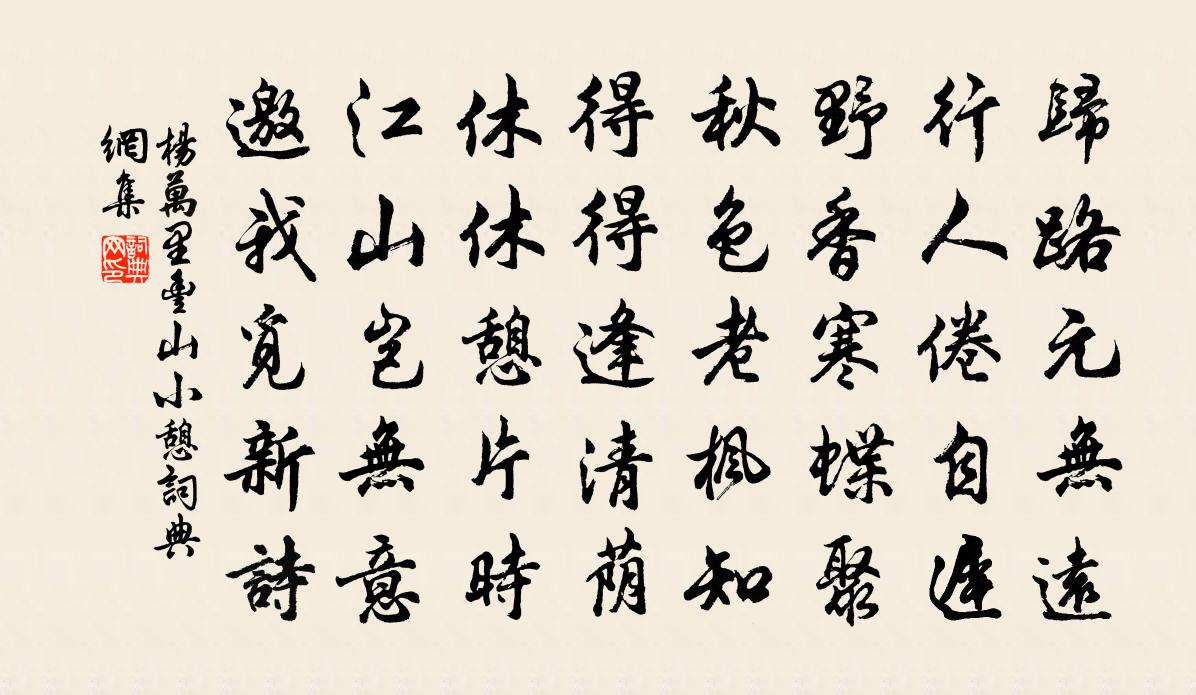 歸路元無遠
行人倦自遲
野香寒蝶聚
秋色老楓知
得得逢清蔭
休休憩片時
江山豈無意
邀我覓新詩
楊萬里壹山小憩詞典
網集
詞典
网印